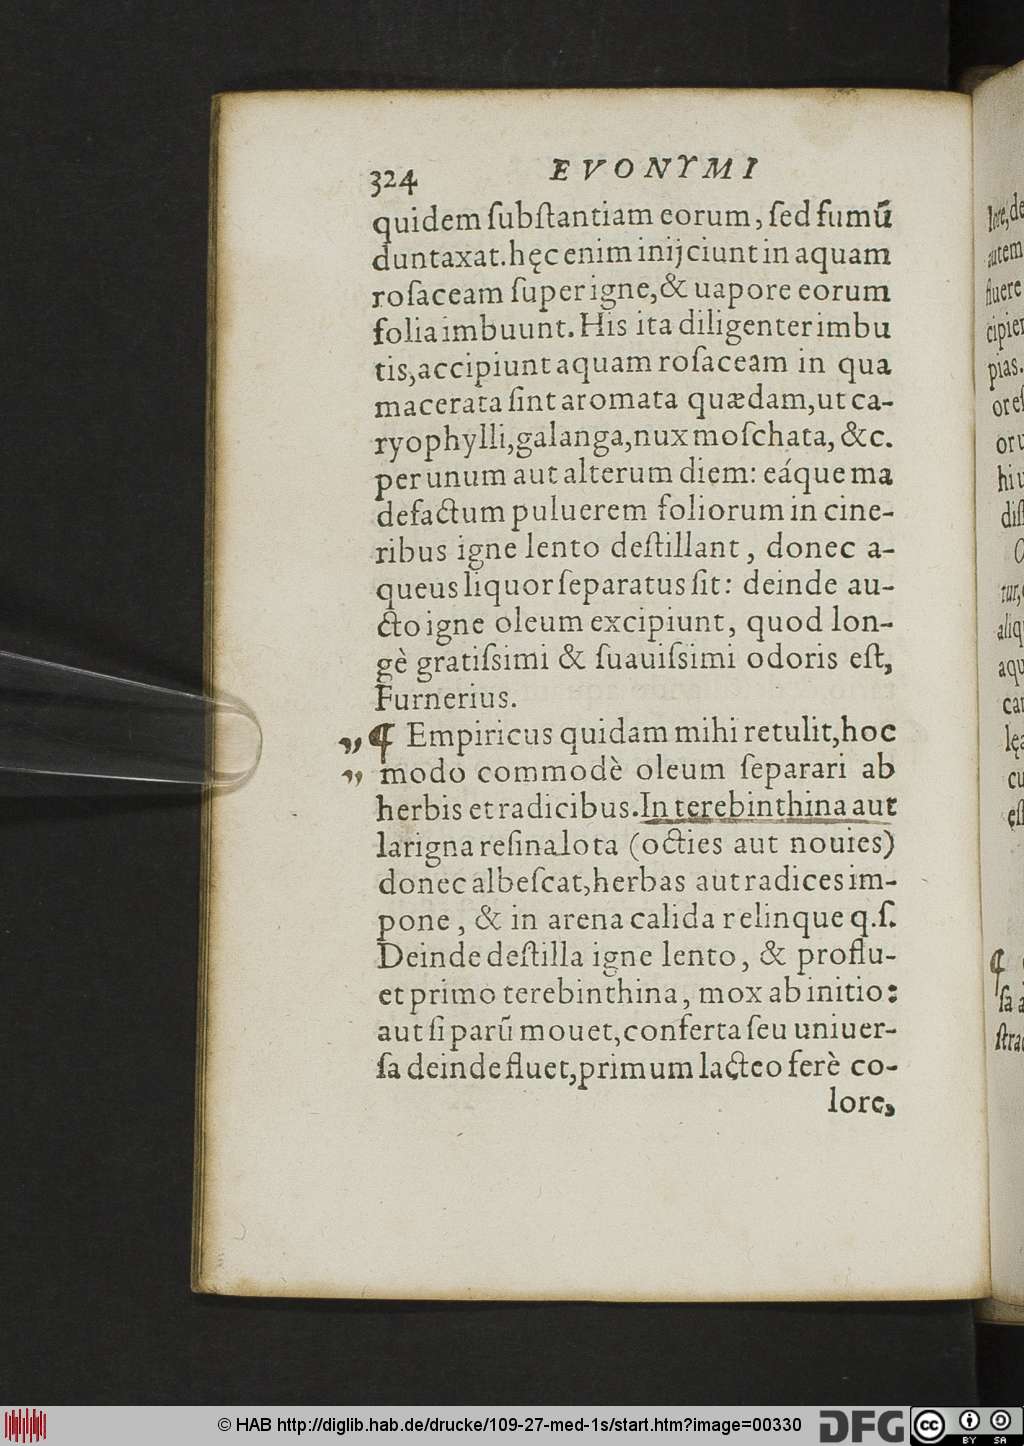 324 EVONYMI
quidem ſubſtantiam eorum, ſed fumū
duntaxat. hęc enim inijciunt in aquam
roſaceam ſuper igne, & uapore eorum
folia imbuunt. His ita diligenter imbu
tis, accipiunt aquam roſaceam in qua
macerata ſint aromata quædam, ut ca-
ryophylli, galanga, nux moſchata, &c.
per unum aut alterum diem: eáque ma
defactum puluerem foliorum in cine-
ribus igne lento deſtillant, donec a-
queus liquor ſeparatus ſit: deinde au-
cto igne oleum excipiunt, quod lon-
gè gratiſsimi & ſuauiſsimi odoris eſt,
Furnerius.
„ ¶ Empiricus quidam mihi retulit, hoc
„ modo commodè oleum ſeparari ab
herbis et radicibus. In terebinthina aut
larigna reſina lota (octies aut nouies)
donec albeſcat, herbas aut radices im-
pone, & in arena calida relinque q.ſ.
Deinde deſtilla igne lento, & proflu-
et primo terebinthina, mox ab initio:
aut ſi parū mouet, conferta ſeu uniuer-
ſa deinde fluet, primum lacteo ferè co-
lore,
lore, de
autem
fluere
cipien
pias.
or u
hi u
diſ
tur,
aliqu
aqu
car
cu
eſt
¶
ſa a
ſtra
© HAB http://diglib.hab.de/drucke/109-27-med-1s/start.htm?image=00330
DFG
cc BY SA